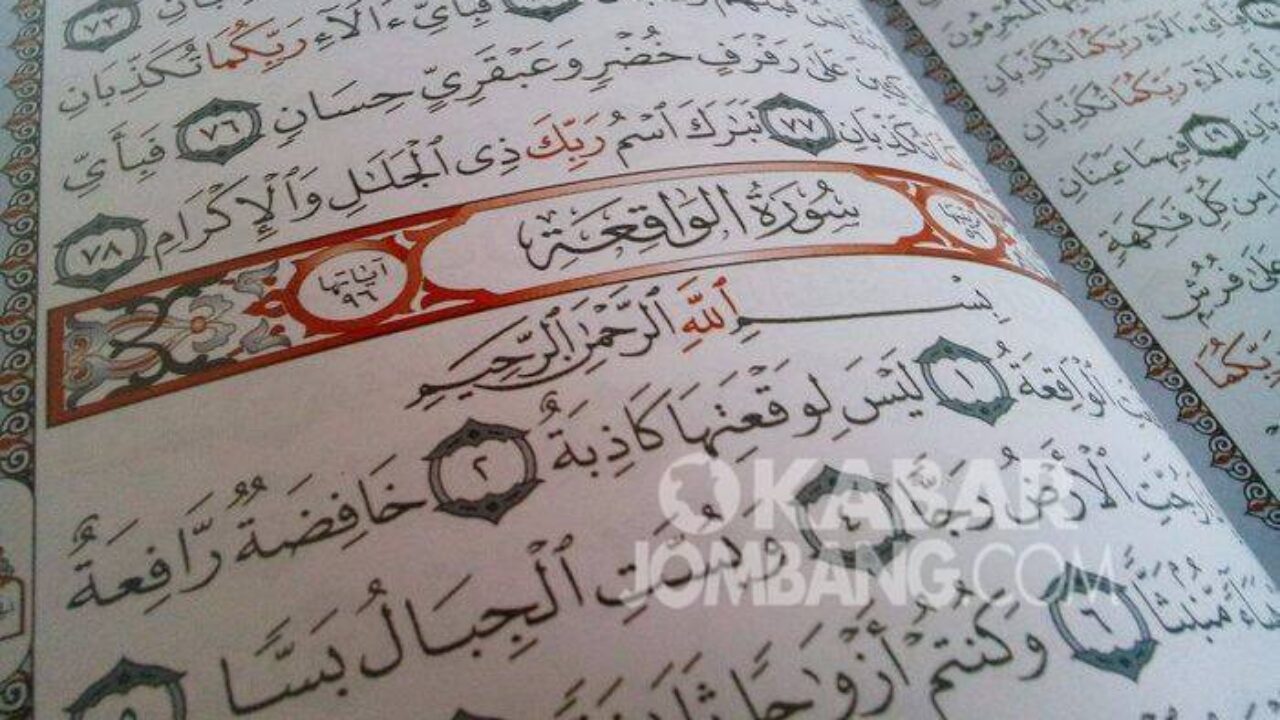 ٧٣
فَبِأَيِّ ءَالَآءِ رَبِّكُمَا تُكَذِّبَانِ
عَلَىٰ رَفْرَفٍ خُضْرٍ وَعَبْقَرِيٍّ حِسَانٍ ٧٦ فَبِأَيِّ
تُكَذِّبَانِ ٧٧ تَبَٰرَكَ ٱسْمُ رَبِّكَ ذِى ٱلْجَلَٰلِ وَٱلْإِكْرَامِ ٧٨
سُورَةُ الوَاقِعَةِ
آيَاتُهَا ٩٦
بِسْمِ ٱللَّهِ ٱلرَّحْمَٰنِ ٱلرَّحِيمِ
ٱلْوَاقِعَةُ ١ لَيْسَ لِوَقْعَتِهَا كَاذِبَةٌ ٢ خَافِضَةٌ رَّافِعَةٌ
رُجَّتِ ٱلْأَرْضُ رَجًّا ٤ وَبُسَّتِ ٱلْجِبَالُ بَسًّا
مُّنۢبَثًّا ٦ وَكُنتُمْ أَزْوَٰجًا ثَلَٰثَةً
رَبِّكُمَا تُكَذِّبَانِ
ءَالَآءِ رَبِّكُمَا تُكَذِّبَانِ
فِيهِمَا عَيْنَانِ
مِن كُلِّ فَٰكِهَةٍ
عَلَىٰ فُرُشٍ
رَبِّكُمَا
KABAR
JOMBANG.COM